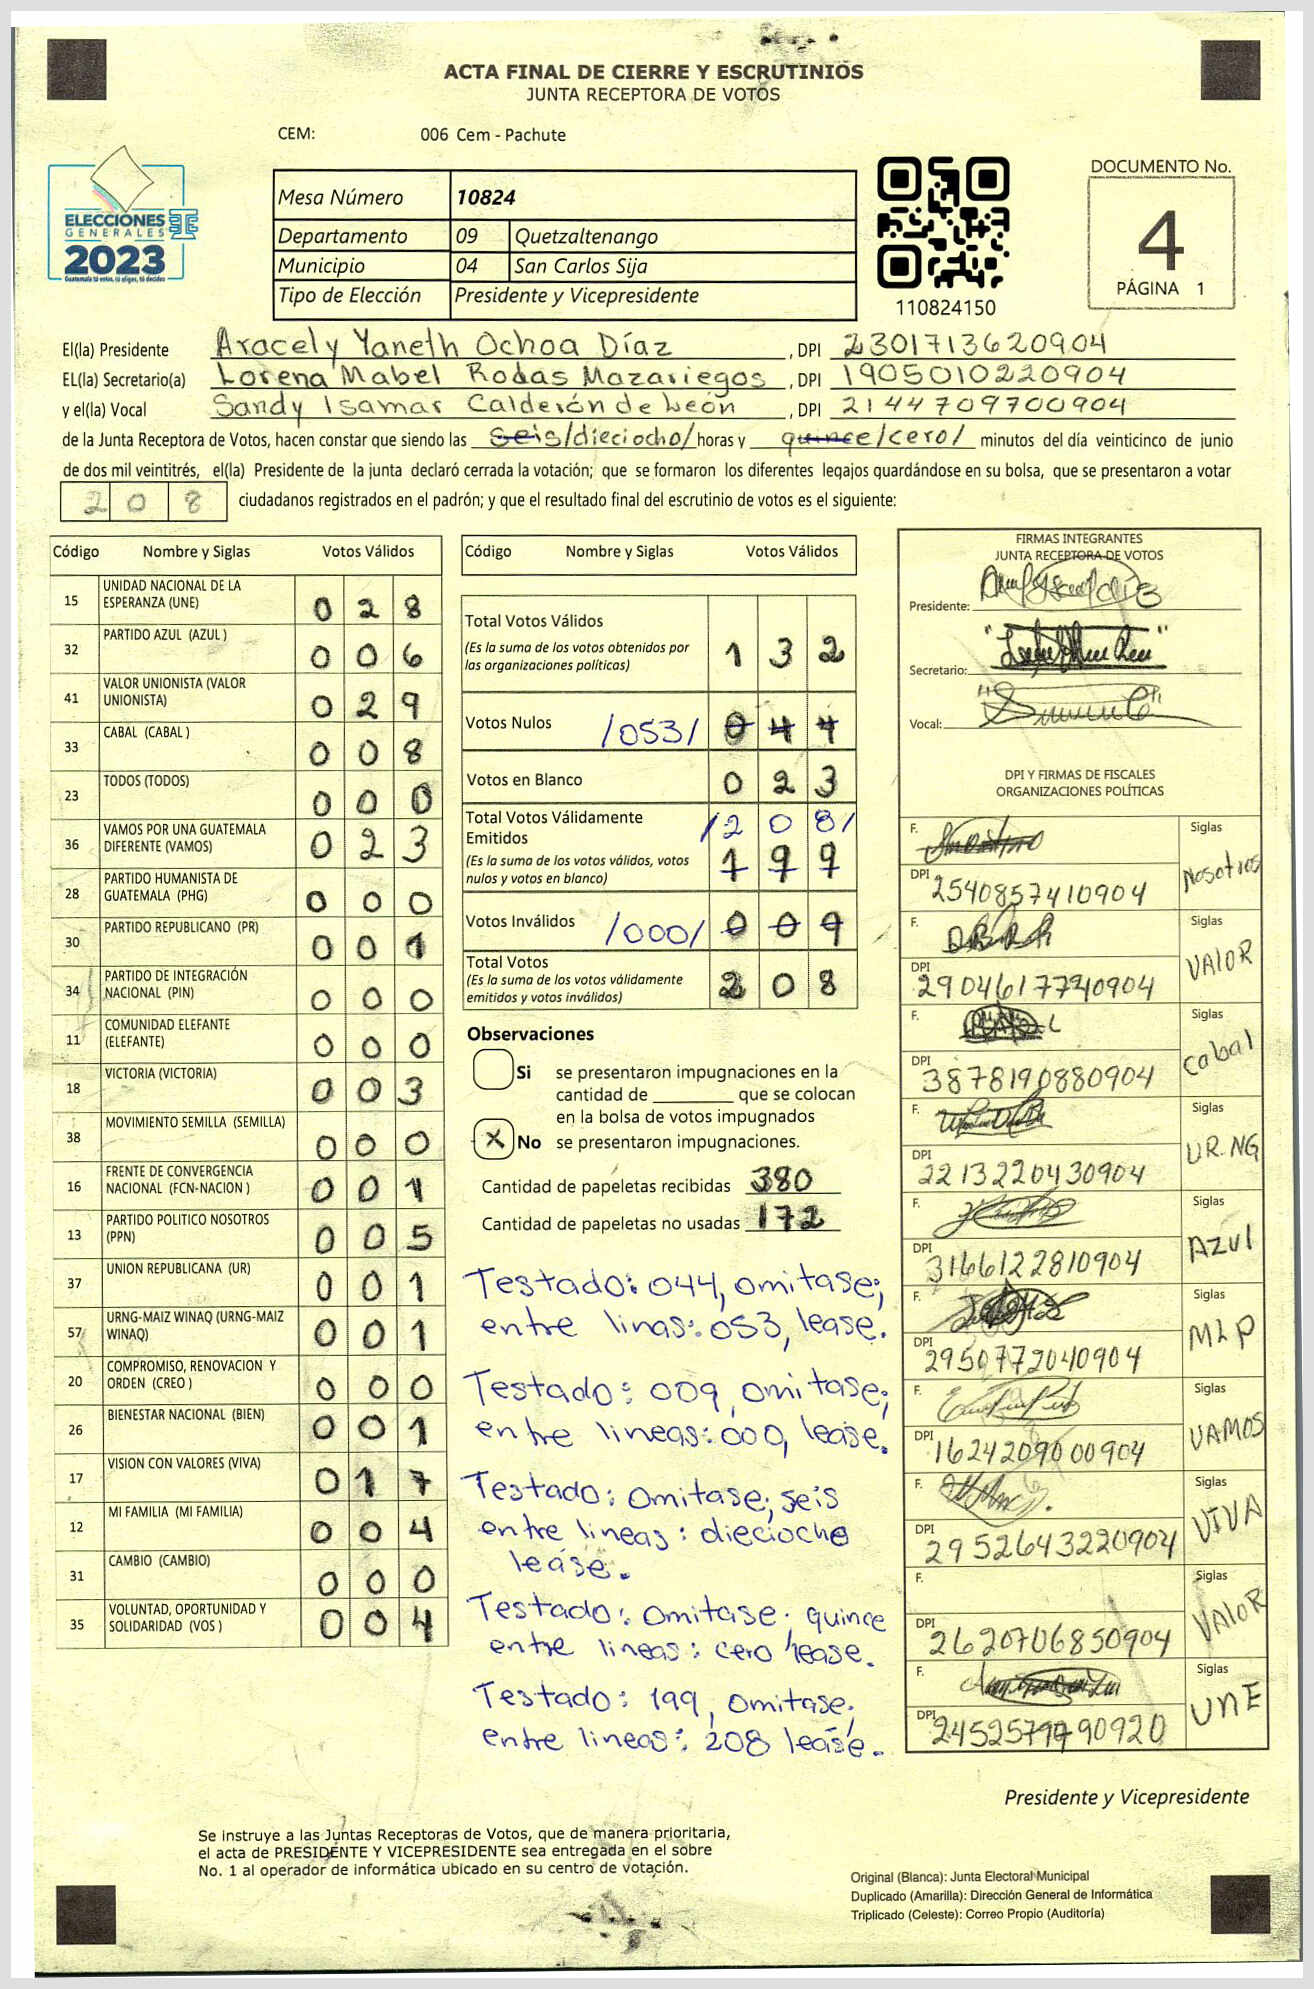 ACTA FINAL DE CIERRE Y ESCRUTINIOS
JUNTA RECEPTORA DE VOTOS
CEM: 006 Cem - Pachute
ELECCIONES
GENERALES
2023
Guatemala tú votas, tú eliges, tú decides
Mesa Número 10824
Departamento 09 Quetzaltenango
Municipio 04 San Carlos Sija
Tipo de Elección Presidente y Vicepresidente
110824150
DOCUMENTO No.
4
PÁGINA 1
El(la) Presidente Aracely Yaneth Ochoa Díaz , DPI 2301713620904
EL(la) Secretario(a) Lorena Mabel Rodas Mazariegos , DPI 1905010220904
y el(la) Vocal Sandy Isamar Calderón de León , DPI 2144709700904
de la Junta Receptora de Votos, hacen constar que siendo las seis/dieciocho/ horas y quince/cero/ minutos del día veinticinco de junio
de dos mil veintitrés, el(la) Presidente de la junta declaró cerrada la votación; que se formaron los diferentes legajos guardándose en su bolsa, que se presentaron a votar
208 ciudadanos registrados en el padrón; y que el resultado final del escrutinio de votos es el siguiente:
Código Nombre y Siglas Votos Válidos
15 UNIDAD NACIONAL DE LA ESPERANZA (UNE) 0 2 8
32 PARTIDO AZUL (AZUL ) 0 0 6
41 VALOR UNIONISTA (VALOR UNIONISTA) 0 2 9
33 CABAL (CABAL ) 0 0 8
23 TODOS (TODOS) 0 0 0
36 VAMOS POR UNA GUATEMALA DIFERENTE (VAMOS) 0 2 3
28 PARTIDO HUMANISTA DE GUATEMALA (PHG) 0 0 0
30 PARTIDO REPUBLICANO (PR) 0 0 1
34 PARTIDO DE INTEGRACIÓN NACIONAL (PIN) 0 0 0
11 COMUNIDAD ELEFANTE (ELEFANTE) 0 0 0
18 VICTORIA (VICTORIA) 0 0 3
38 MOVIMIENTO SEMILLA (SEMILLA) 0 0 0
16 FRENTE DE CONVERGENCIA NACIONAL (FCN-NACION ) 0 0 1
13 PARTIDO POLITICO NOSOTROS (PPN) 0 0 5
37 UNION REPUBLICANA (UR) 0 0 1
57 URNG-MAIZ WINAQ (URNG-MAIZ WINAQ) 0 0 1
20 COMPROMISO, RENOVACION Y ORDEN (CREO ) 0 0 0
26 BIENESTAR NACIONAL (BIEN) 0 0 1
17 VISION CON VALORES (VIVA) 0 1 7
12 MI FAMILIA (MI FAMILIA) 0 0 4
31 CAMBIO (CAMBIO) 0 0 0
35 VOLUNTAD, OPORTUNIDAD Y SOLIDARIDAD (VOS ) 0 0 4
Código Nombre y Siglas Votos Válidos
Total Votos Válidos 1 3 2
(Es la suma de los votos obtenidos por
las organizaciones políticas)
Votos Nulos /053/ 0 4 4
Votos en Blanco 0 2 3
Total Votos Válidamente /2 0 8/
Emitidos 1 9 9
(Es la suma de los votos válidos, votos
nulos y votos en blanco)
Votos Inválidos /000/ 0 0 9
Total Votos 2 0 8
(Es la suma de los votos válidamente
emitidos y votos inválidos)
Observaciones
Si se presentaron impugnaciones en la
cantidad de ________ que se colocan
en la bolsa de votos impugnados
X No se presentaron impugnaciones.
Cantidad de papeletas recibidas 380
Cantidad de papeletas no usadas 172
Testado: 044, omitase;
entre linas: 053, lease.
Testado: 009, omitase;
entre lineas: 000, lease.
Testado: omitase; seis
entre lineas: dieciocho
lease.
Testado: omitase. quince
entre lineas: cero lease.
Testado: 199, omitase;
entre lineas: 208 lease.
FIRMAS INTEGRANTES
JUNTA RECEPTORA DE VOTOS
Presidente:
Secretario:
Vocal:
DPI Y FIRMAS DE FISCALES
ORGANIZACIONES POLÍTICAS
F. Siglas
DPI 2540857410904 Nosotros
F. Siglas
DPI VALOR
F. Siglas
DPI 3878190880904 Cabal
F. Siglas
DPI 2213220430904 UR.NG
F. Siglas
DPI 3166122810904 AZUl
F. Siglas
DPI 2950772040904 MLP
F. Siglas
DPI 1624209000904 VAMOS
F. Siglas
DPI 2952643220904 VIVA
F. Siglas
DPI 2620706850904 VALOR
F. Siglas
DPI UNE
Presidente y Vicepresidente
Se instruye a las Juntas Receptoras de Votos, que de manera prioritaria,
el acta de PRESIDENTE Y VICEPRESIDENTE sea entregada en el sobre
No. 1 al operador de informática ubicado en su centro de votación.
Original (Blanca): Junta Electoral Municipal
Duplicado (Amarilla): Dirección General de Informática
Triplicado (Celeste): Correo Propio (Auditoría)